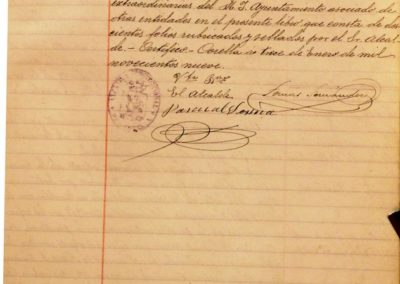 extraordinarias del M. I. Ayuntamiento asociado de
otras entidades en el presente libro que consta de dos
cientos folios rubricados y sellados por el Sr. Alcal
de. - Certifico. - Corella a trece de Enero de mil
novecientos nueve.
Vto Bno
El Alcalde
Pascual